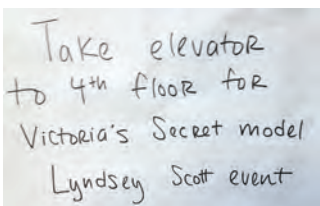 Take elevator
to 4th floor for
Victoria's Secret model
Lyndsey Scott event